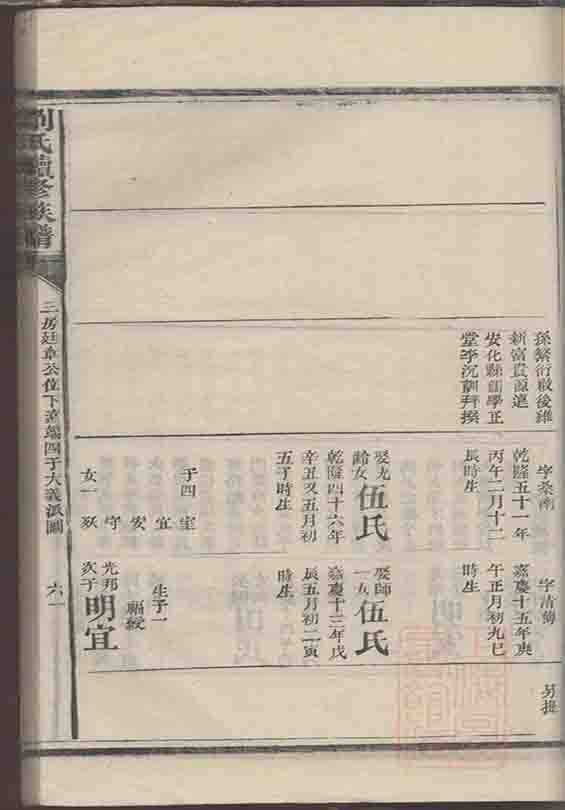 劉氏續修族譜
三房廷章公位下
六一
孫繁衍敬後維
新富貴源遠
安化縣儒學正
堂李沉訓拜撰
乾隆五十一年
丙午二月十二
辰時生
伍氏
乾隆四十六年
辛丑又五月初
五丁時生
子四 室
宜
安
守
女一
字清
嘉慶十五年庚
午正月初九巳
時生
娶師
一女
伍氏
嘉慶十三年戊
辰五月初二寅
時生
生子一
福綬
光邦
次子
明宜
另提